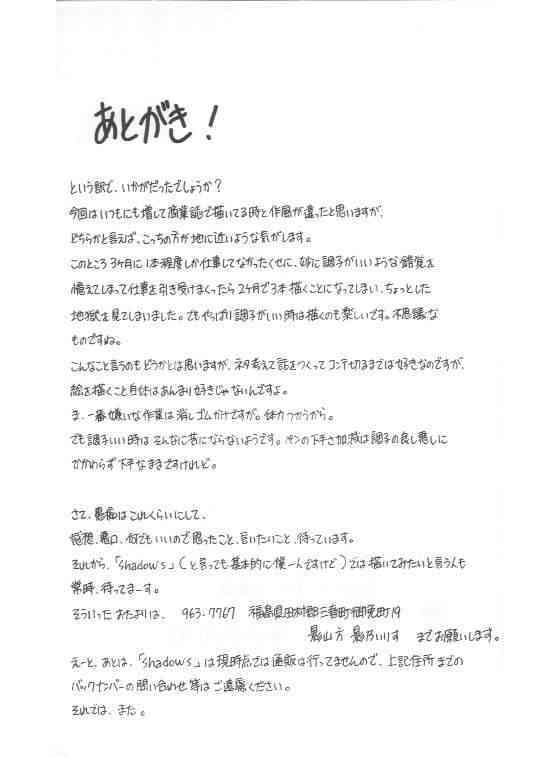 あとがき！
という訳で、いかがだったでしょうか？
今回はいつもにも増して商業誌で描いてる時と作風が違ったと思いますが、
どちらかと言えば、こっちの方が地に近いような気がします。
このところ3ヶ月に1本程度しか仕事してなかったくせに、妙に調子がいいような錯覚を
憶えてしまって仕事を引き受けまくったら2ヶ月で3本描くことになってしまい、ちょっとした
地獄を見てしまいました。でもやっぱり調子がいい時は描くのも楽しいです。不思議な
ものですね。
こんなこと言うのもどうかとは思いますが、ネタ考えて話をつくってコンテ切るまでは好きなのですが、
絵を描くこと自体はあんまり好きじゃないんですよ。
ま、一番嫌いな作業は消しゴムかけですが。体力つかうから。
でも調子いい時はそんなに苦にならないようです。ペンの下手さ加減は調子の良し悪しに
かかわらず下手なままですけれど。
さて、愚痴はこれくらいにして、
感想、悪口、何でもいいので思ったこと、言いたいこと、待っています。
それから、「shadows」(と言っても基本的に僕一人ですけど)では描いてみたいと言う人も
常時、待ってまーす。
そういったおたよりは、 963-7767 福島県田村郡三春町 町19
影山方 影乃いりす までお願いします。
えーと、あとは、「shadows」は現時点では通販は行ってませんので、上記住所までの
バックナンバーの問い合わせ等はご遠慮ください。
それでは、また。